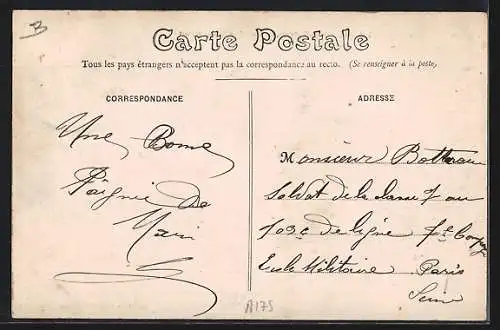 B
Carte Postale
Tous les pays étrangers n'acceptent pas la correspondance au recto. (Se renseigner à la poste)
CORRESPONDANCE
ADRESSE
Une Bonne
Poignée de
Main
Monsieur
Soldat de la classe 7 au
103e de ligne
Ecole Militaire Paris
Seine
A175